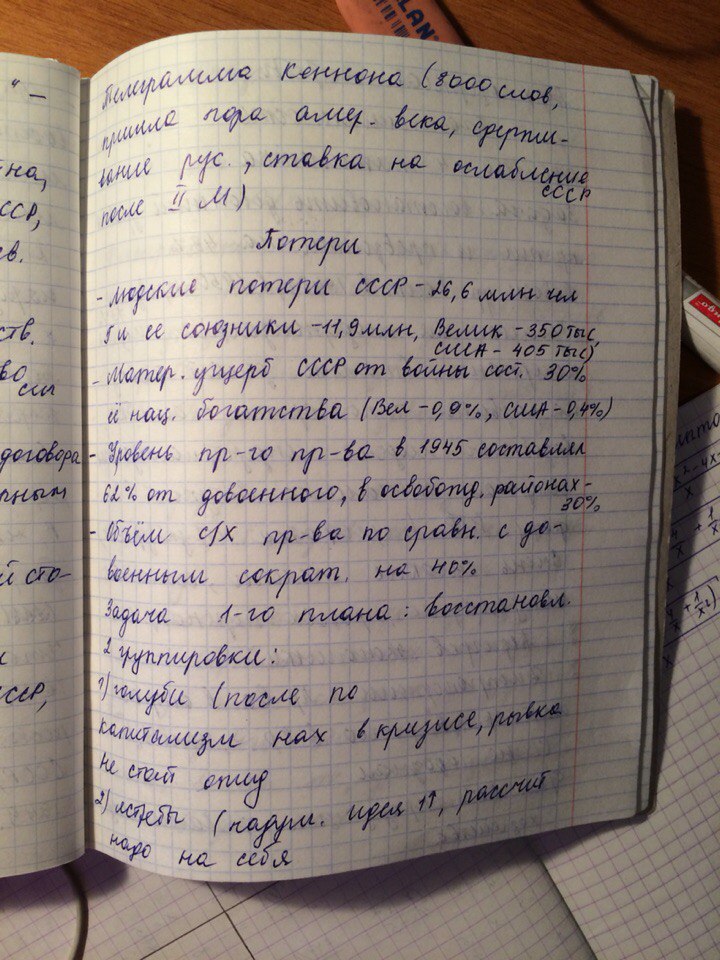 Телеграмма Кеннона (8000 слов,
пришла пора амер. века, сдержи-
вание рус., ставка на ослабление
СССР
после II М)
Потери
- людские потери СССР - 26,6 млн чел
Г и её союзники - 11,9 млн, Велик - 350 тыс,
США - 405 тыс)
- Матер. ущерб СССР от войны сост. 30%
её нац. богатства (Вел - 0,9%, США - 0,4%)
- Уровень пр-го пр-ва в 1945 составлял
62% от довоенного, в освобожд. районах -
30%
- Объём с/х пр-ва по сравн. с до-
военным сократ. на 40%
Задача 1-го плана: восстановл.
2 группировки:
1) голуби (после по
капитализм нах в кризисе, рывка
не стоит ожид
2) ястребы ( идея 1↑, рассчит
надо на себя
" –
на,
ССР,
ев.
ств.
во
сш
договора
рным
й сто-
и
ССР,
LAN